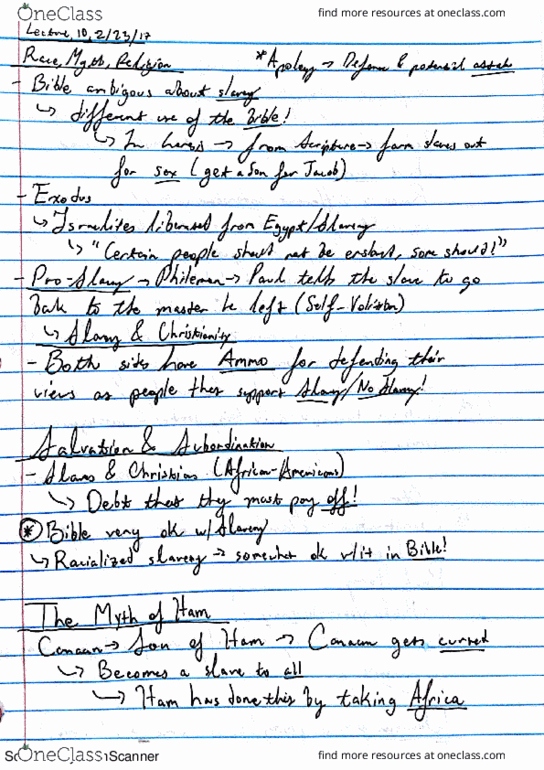 OneClass find more resources at oneclass.com
Lecture, 10, 2/23/17
Race, Myth, Religion *Apology → Defense & potential attack
- Bible ambigous about slavery
↳ different use of the Bible!
↳ In → from Scripture → farm slaves out
for sex (get a Son for Jacob)
- Exodus
↳ Israelites liberated from Egypt/Slavery
↳ "Certain people should not be enslaved, some should!"
- Pro-Slavery → Philemon → Paul tells the slave to go
back to the master he left (Self-Volition)
↳ Slavery & Christianity
- Both sides have Ammo for defending their
views as people they support Slavery/No Slavery!
Salvation & Subordination
- Slaves & Christians (African-Americans)
↳ Debt that they must pay off!
* Bible very ok w/ Slavery
↳ Racialized slavery → somewhat ok w/it in Bible!
The Myth of Ham
Canaan → Son of Ham → Canaan gets cursed
↳ Becomes a slave to all
↳ Ham has done this by taking Africa
OneClass Scanner find more resources at oneclass.com